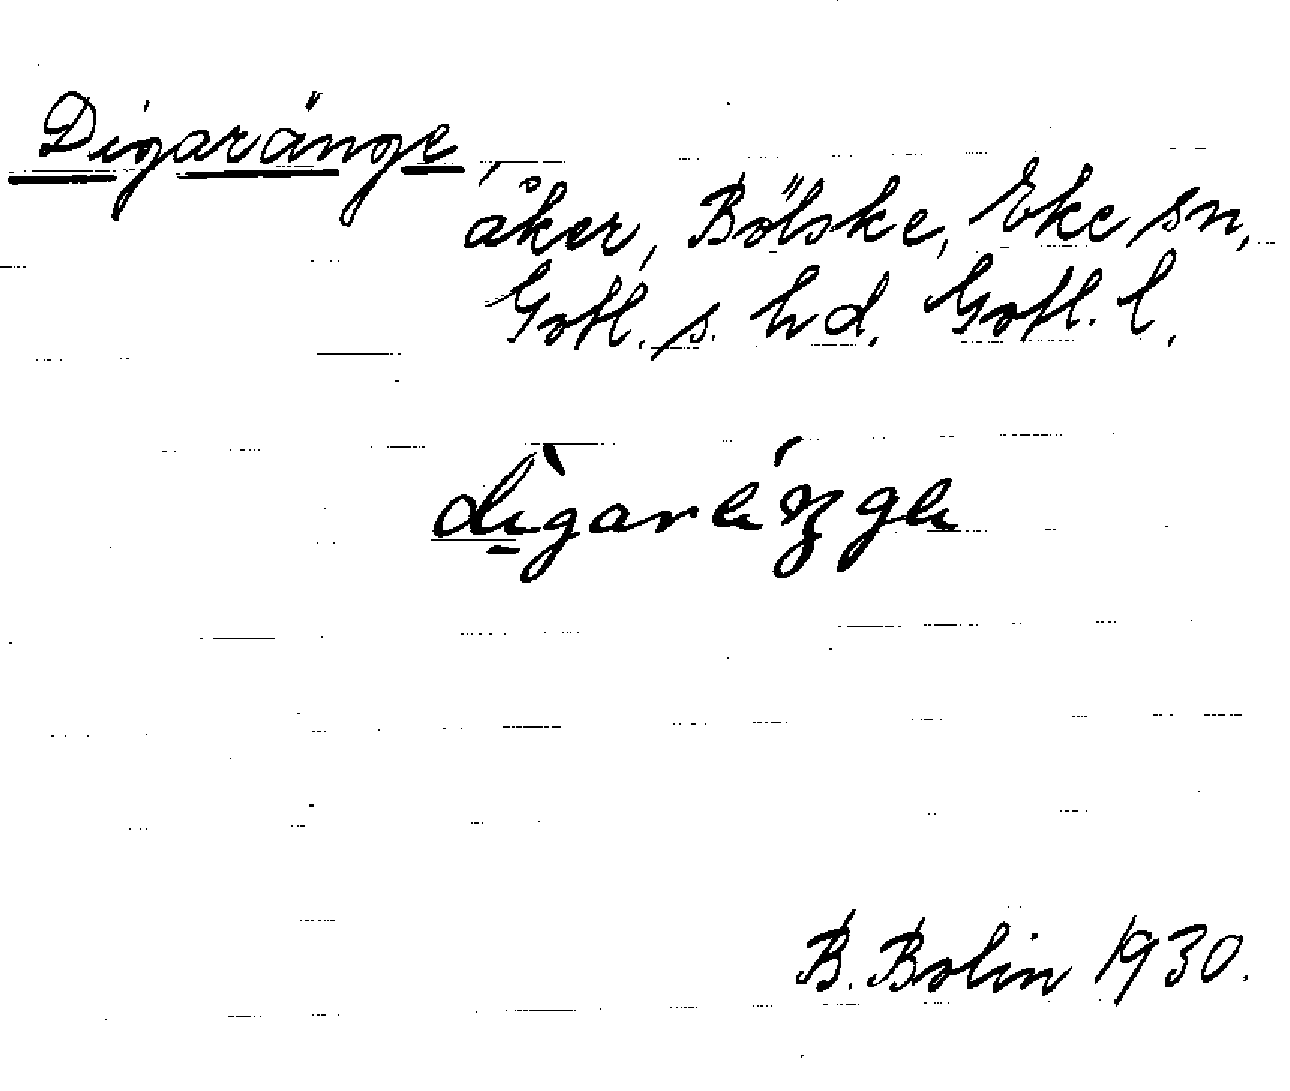 Digaränge,
åker, Bölske, Eke sn,
Gotl. s. hd. Gotl. l.
B. Bolin 1930.